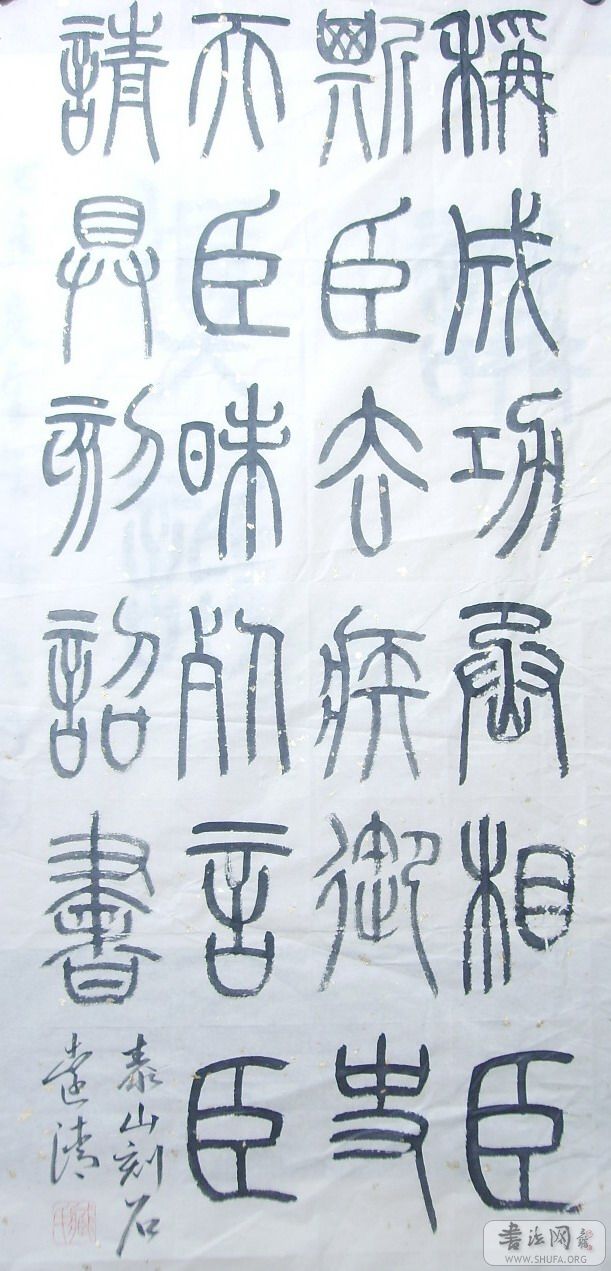 稱成功相臣
斯臣去疾御史
夫臣昧死言臣
請具刻詔書
泰山刻石
清
書法网
WWW.SHUFA.ORG